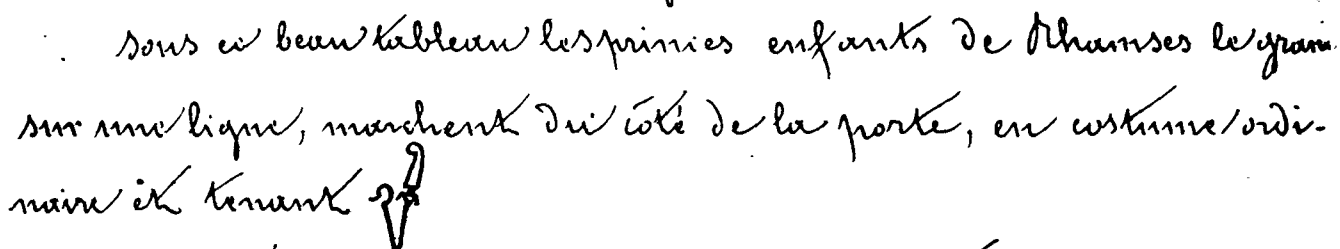 sous ce beau tableau les princes enfants de Rhamses le grand
sur une ligne, marchent du côté de la porte, en costume ordi-
naire et tenant